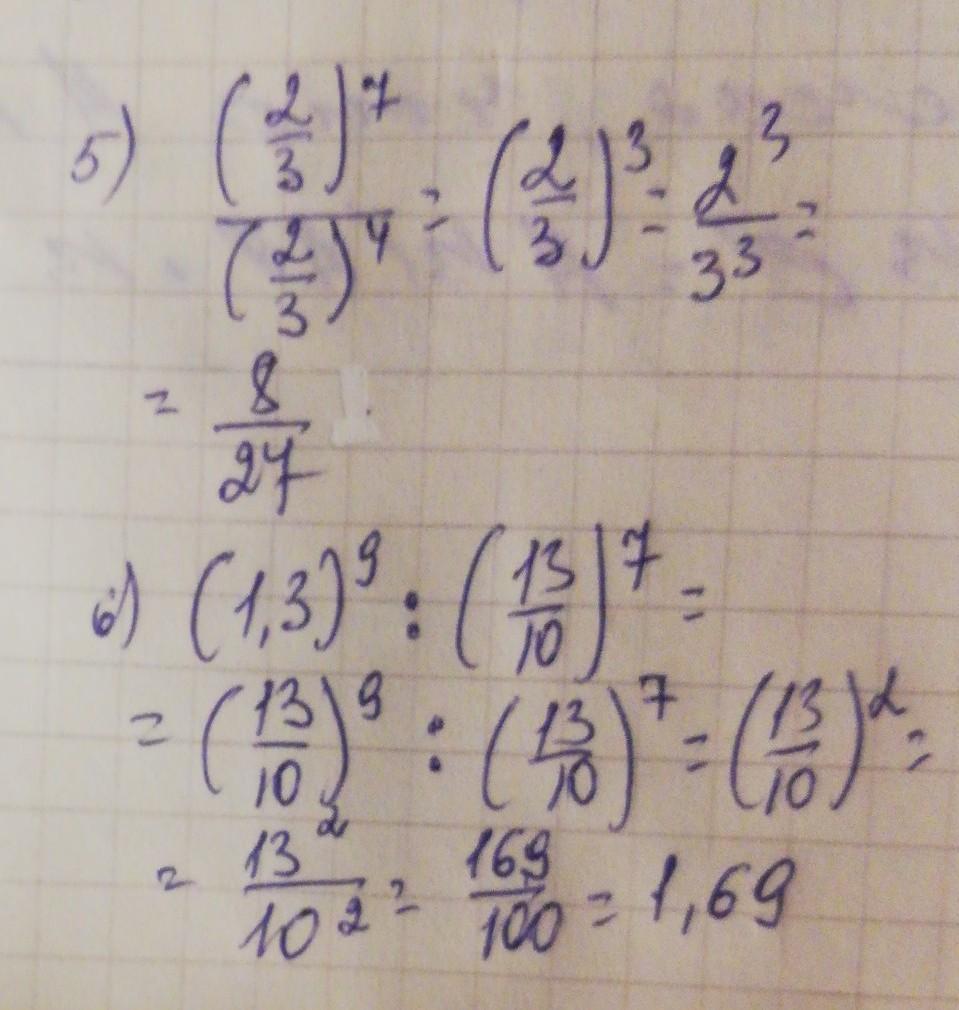 5) (2/3)^7 / (2/3)^4 = (2/3)^3 = 2^3/3^3 =
= 8/27
6) (1,3)^9 : (13/10)^7 =
= (13/10)^9 : (13/10)^7 = (13/10)^2 =
= 13^2/10^2 = 169/100 = 1,69